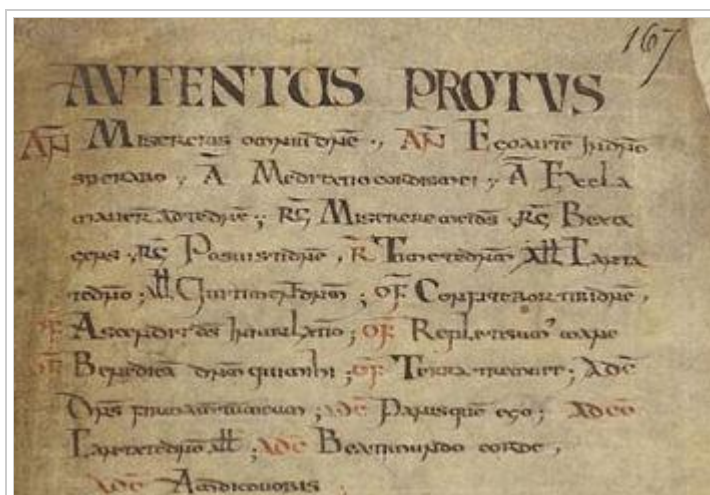 167
AVTENTUS PROTVS
AN Misereris omnium dne ., AN Ego autē in dno
sperabo ; A Meditatio cordis mei ; A Excla
maver ad te dne ; RG Miserere mei ds . RG Beata
gens . RG Posuisti dne , R Timete dnm All Laeta
te dno ; All Qui timent dnm ; OF Confitebor tibi dne ,
OF Ascendit ds in iubilatio ; OF Repleti sum' mane
OF Benedicā dnm qui mihi ; OF Terra tremuit ; AdC
Dns firmamentum ; AdC Panis quē ego ; AdCō
Laetate dno All ; AdC Beati mundo corde ,
AdC Amdico vobis .